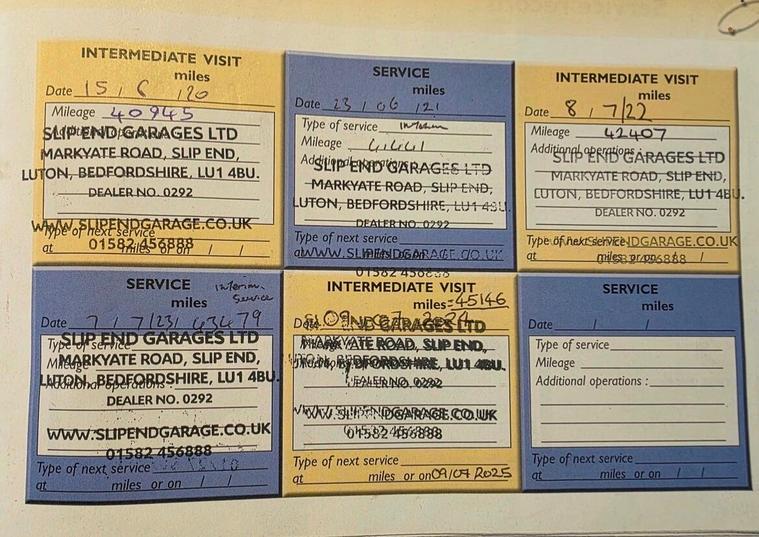 INTERMEDIATE VISIT
miles
Date 15 / 6 / 20
Mileage 40945
SLIP END GARAGES LTD
MARKYATE ROAD, SLIP END,
LUTON, BEDFORDSHIRE, LU1 4BU.
DEALER NO. 0292
WWW.SLIPENDGARAGE.CO.UK
Type of next service
01582 456888
at miles or on / /
SERVICE
miles
Date 23 / 06 / 21
Type of service Interim
Mileage
Additional operations :
SLIP END GARAGES LTD
MARKYATE ROAD, SLIP END,
LUTON, BEDFORDSHIRE, LU1 4BU.
DEALER NO. 0292
Type of next service
at WWW.SLIPENDGARAGE.CO.UK
01582 456888
INTERMEDIATE VISIT
miles
Date 8 / 7/22
Mileage 42407
Additional operations :
SLIP END GARAGES LTD
MARKYATE ROAD, SLIP END,
LUTON, BEDFORDSHIRE, LU1 4BU.
DEALER NO. 0292
Type of next service
WWW.SLIPENDGARAGE.CO.UK
at miles or on / /
01582 456888
SERVICE Interim
Service
miles
Date 7 / 7/23/ 43479
Type of service
SLIP END GARAGES LTD
MARKYATE ROAD, SLIP END,
Mileage
LUTON, BEDFORDSHIRE, LU1 4BU.
Additional operations :
DEALER NO. 0292
WWW.SLIPENDGARAGE.CO.UK
01582 456888
Type of next service
at miles or on / /
INTERMEDIATE VISIT
miles = 45146
Date 09 07 2024
SLIP END GARAGES LTD
MARKYATE ROAD, SLIP END,
LUTON, BEDFORDSHIRE, LU1 4BU.
DEALER NO. 0292
WWW.SLIPENDGARAGE.CO.UK
01582 456888
Type of next service
at miles or on 09/07/2025
SERVICE
miles
Date / /
Type of service
Mileage
Additional operations :
Type of next service
at miles or on / /